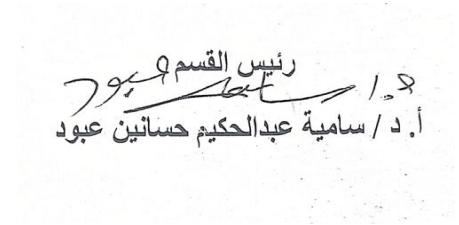 رئيس القسم
أ.د / سامية عبدالحكيم حسانين عبود